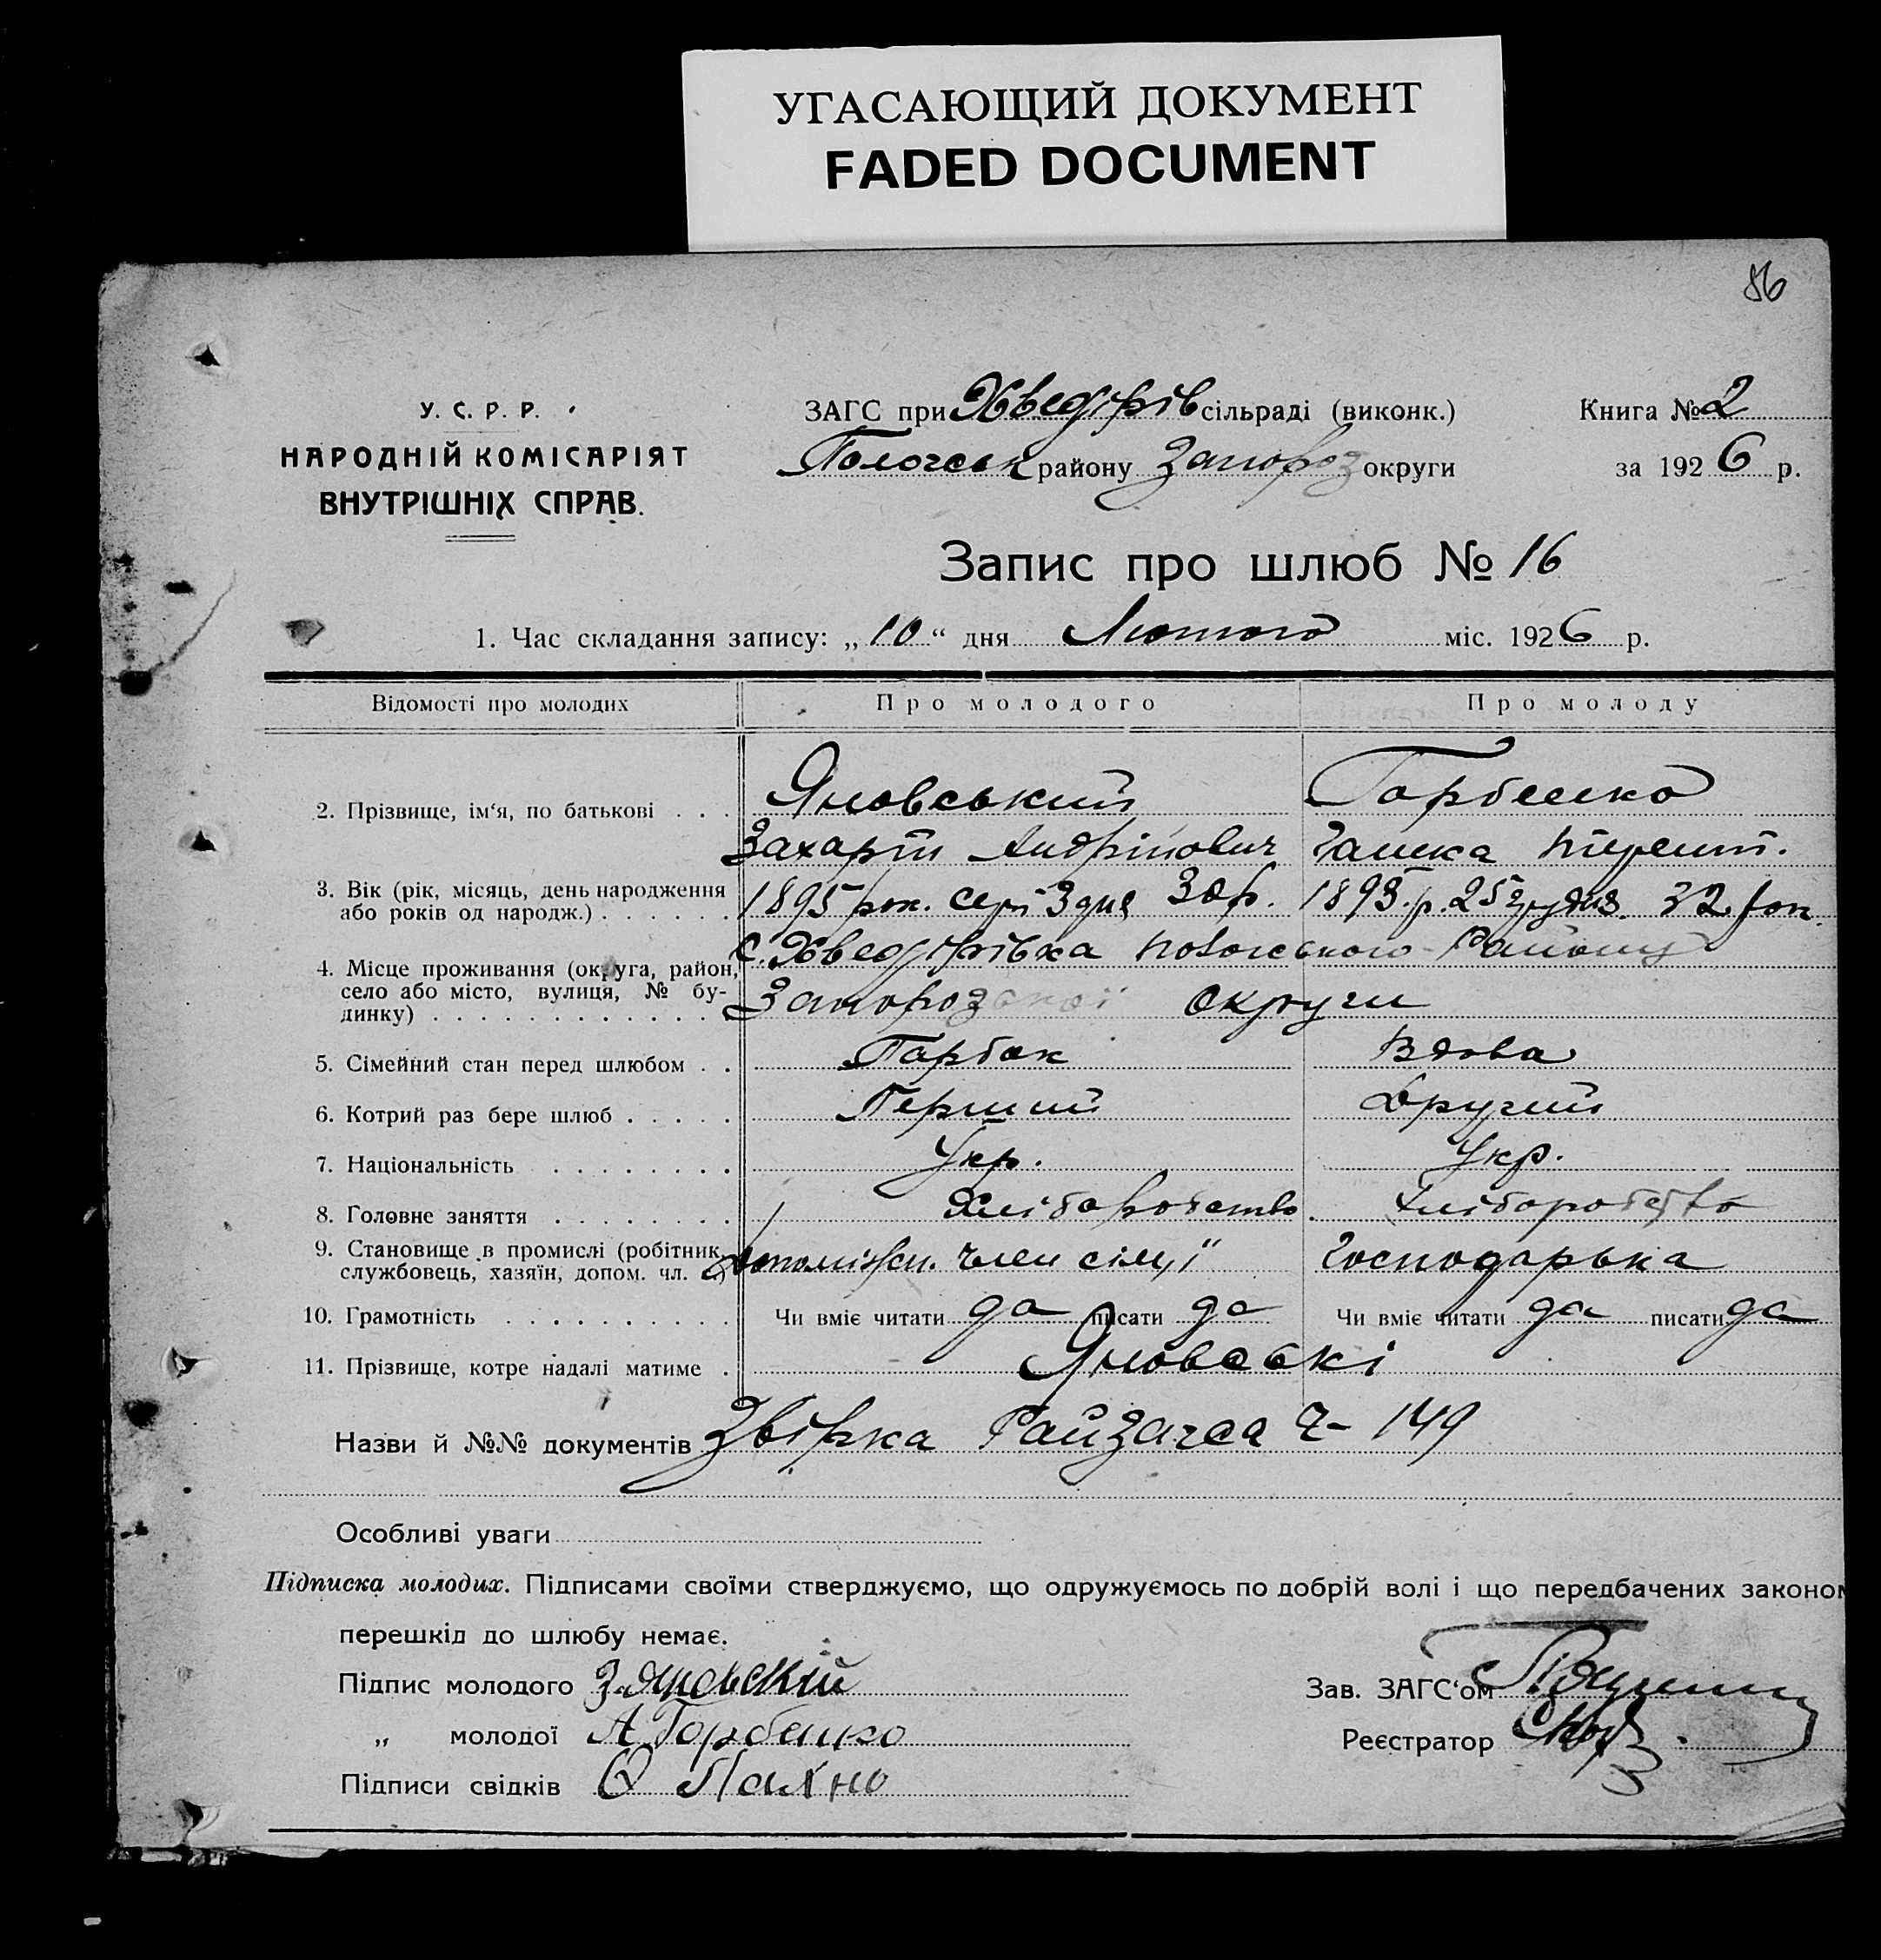 УГАСАЮЩИЙ ДОКУМЕНТ
FADED DOCUMENT
86
У. С. Р. Р.
НАРОДНІЙ КОМІСАРІЯТ
ВНУТРІШНІХ СПРАВ.
ЗАГС при Хведірів сільраді (виконк.)
Книга № 2
Пологськ району Запороз округи
за 1926 р.
Запис про шлюб № 16
1. Час складання запису: „10“ дня Лютого міс. 1926 р.
Відомості про молодих
Про молодого
Про молоду
2. Прізвище, ім‘я, по батькові . . .
Яновський
Горбенко
Захарій Андрійович
Ганска Терент.
3. Вік (рік, місяць, день народження
або років од народж.) . . . . . .
1895 рок. серп 3 дня 30 р.
1893.р. 25 грудня. 32 рок
4. Місце проживання (округа, район,
село або місто, вулиця, № бу-
динку) . . . . . . . . . . . .
с. Хведірівка Пологського Району
Запорозської округи
5. Сімейний стан перед шлюбом . .
Парубок
Вдова
6. Котрий раз бере шлюб . . . . .
Перший
Другий
7. Національність . . . . . . . .
Укр.
Укр.
8. Головне заняття . . . . . . . .
Хлібороbство
Хліборобство
9. Становище в промислі (робітник,
службовець, хазяїн, допом. чл. с.)
допоміжн. член сім'ї
Господарька
10. Грамотність . . . . . . . . . .
Чи вміє читати да писати да
Чи вміє читати да писати да
11. Прізвище, котре надалі матиме .
Яновські
Назви й №№ документів Звірка Райзагса Ч– 149
Особливі уваги
Підписка молодих. Підписами своїми стверджуємо, що одружуємось по добрій волі і що передбачених законом
перешкід до шлюбу немає.
Підпис молодого З. Яновскій
Зав. ЗАГС‘ом
„ молодої А Горбенко
Реєстратор
Підписи свідків О Пахно